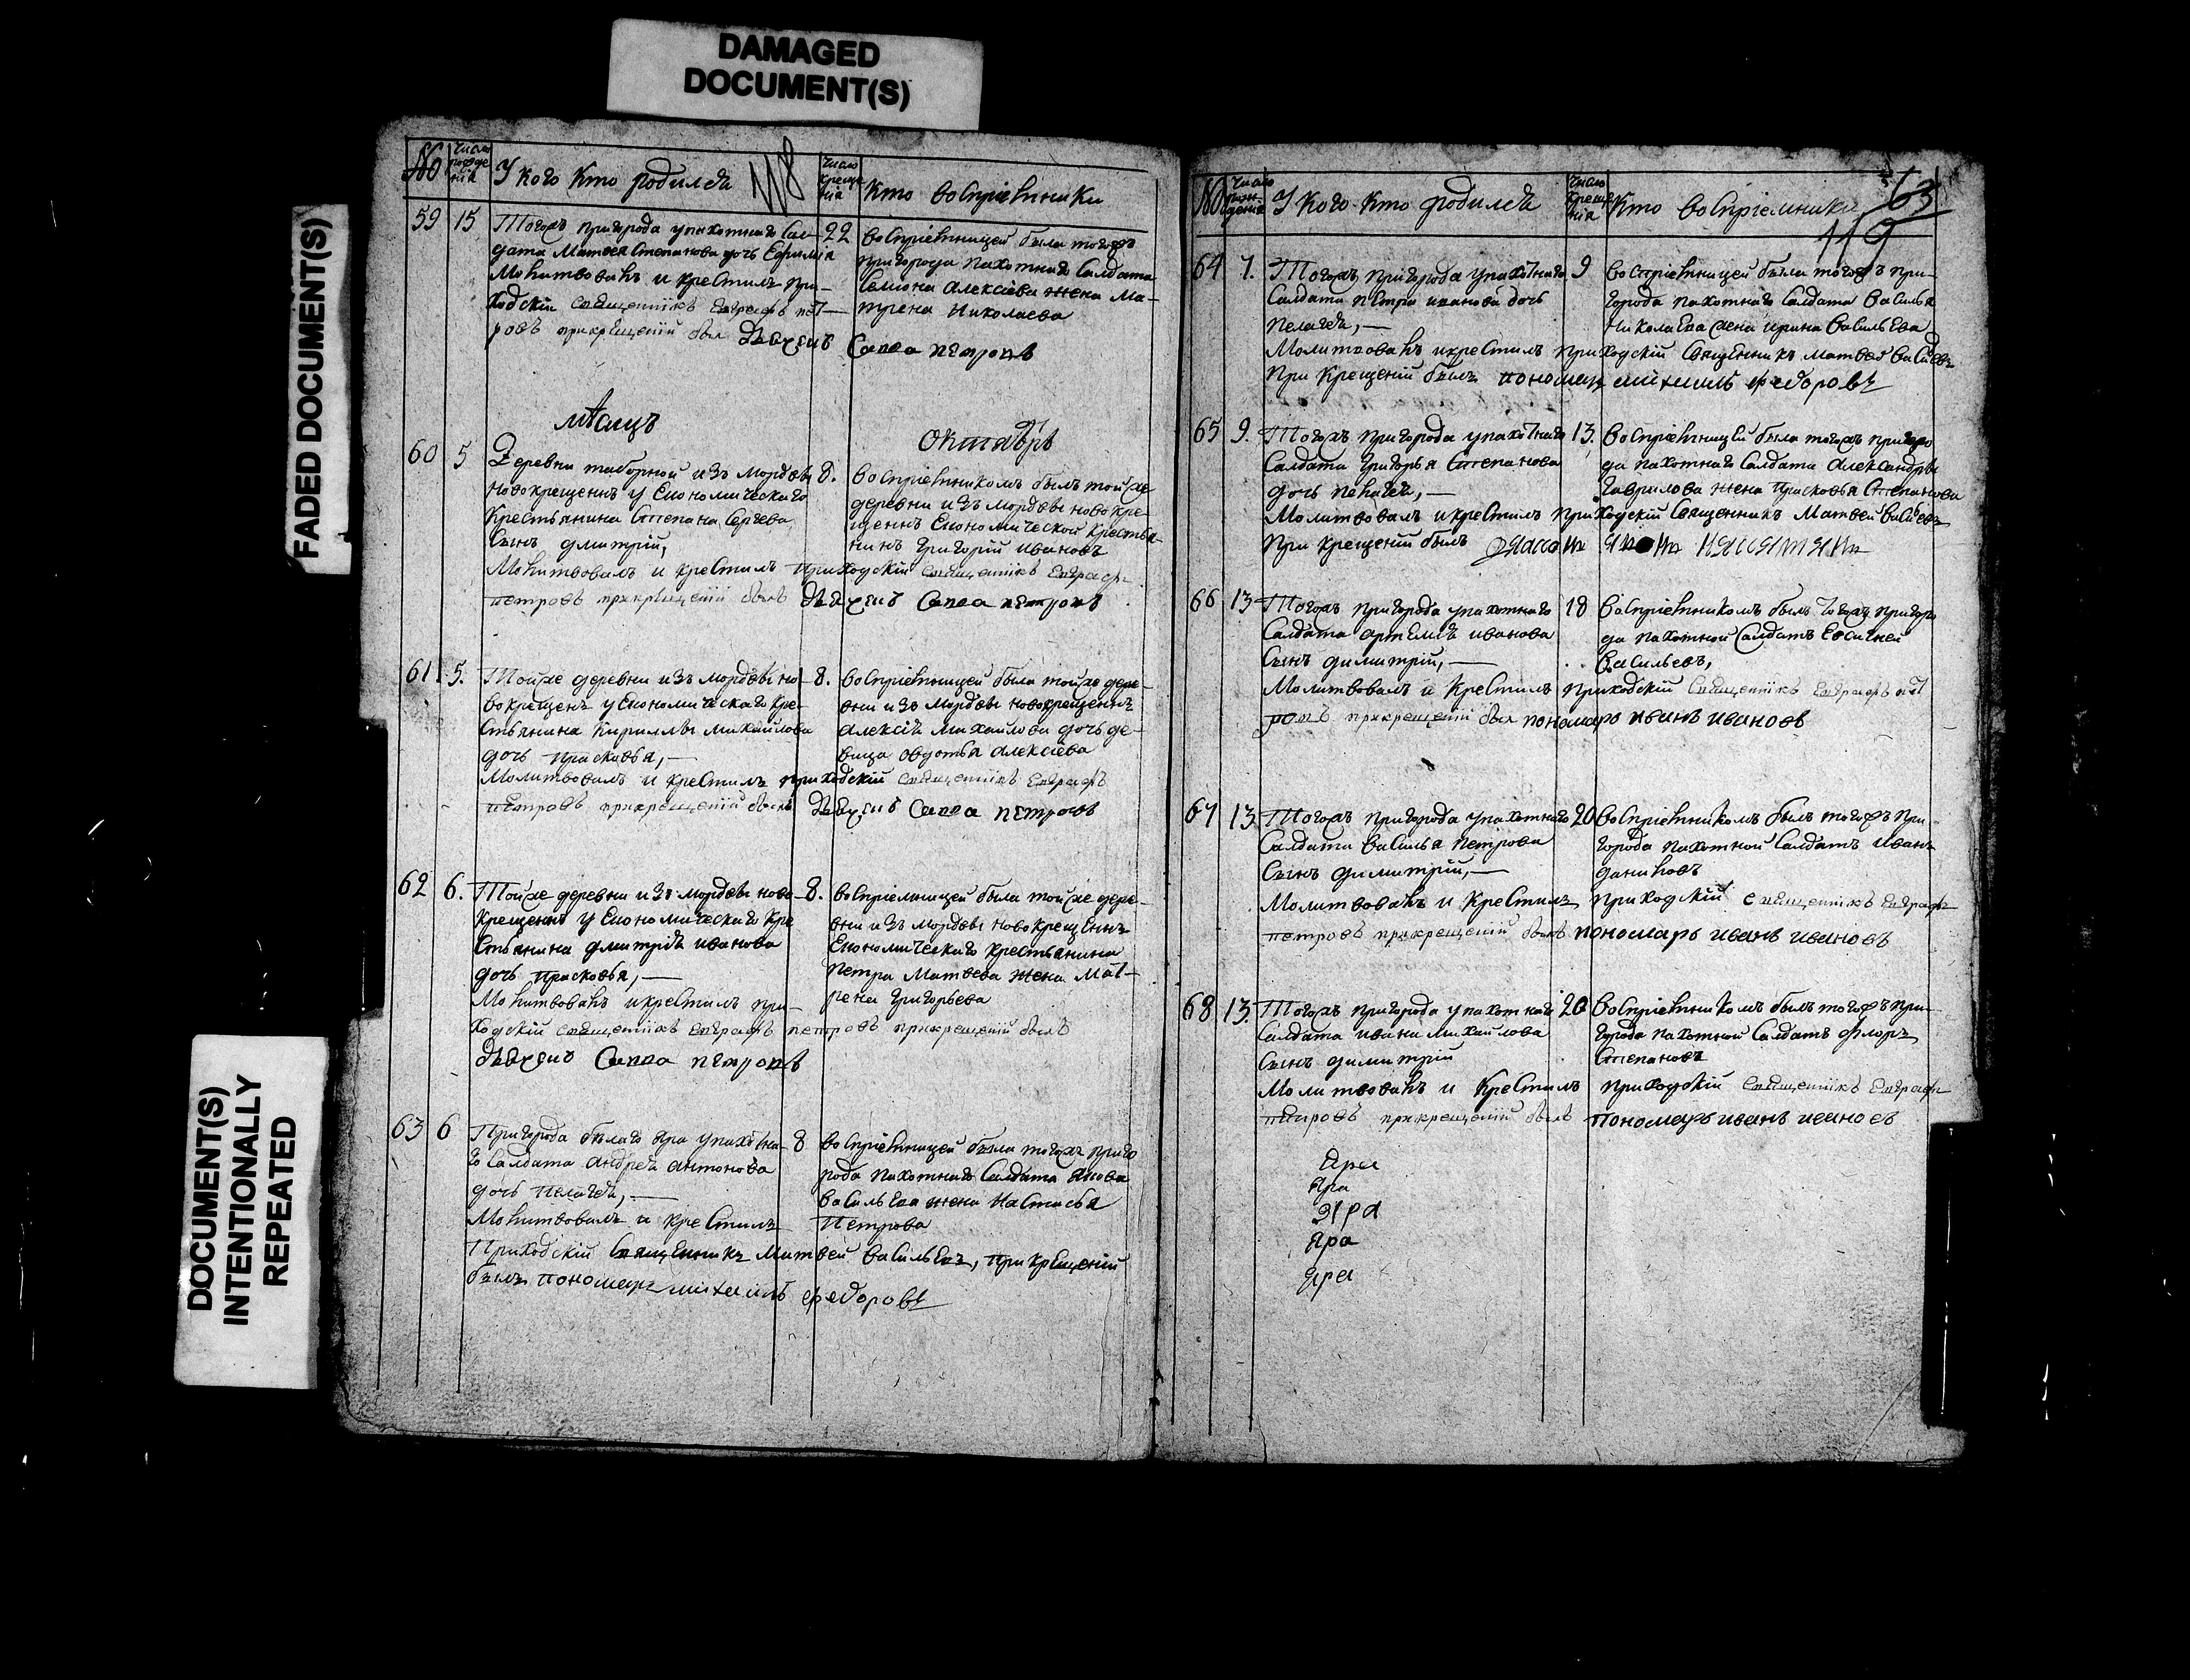 DAMAGED
DOCUMENT(S)
FADED DOCUMENT(S)
DOCUMENT(S)
INTENTIONALLY
REPEATED
No
число рожде нїя
У кого кто родился
118
число креще нїя
кто воспрїемники
59 15 Тогожъ пригорода упахотнаго сал-
дата Матвея Степанова дочь Ефимия
Молитвовалъ и крестилъ при-
ходскїй священникъ Евграфъ пет-
ровъ прикрещенїй был дьячекъ Савва петровъ
22 воспрїемницей была тогожъ
пригорода пахотнаго салдата
Семиона алексїева жена Ма-
трена Николаева
мѣсяцъ Октябрь
60 5 Деревни таборной изъ мордвы
новокрещенъ у Економическаго
Крестьянина Степана Сергева
сынъ дмитрїй,
Молитвовалъ и крестилъ приходскїй священникъ Евграфъ
петровъ прикрещенїй былъ дьячекъ Савва петровъ
8. воспрїемникомъ былъ тойже
деревни изъ мордвы новокре-
щенъ Економической крестья-
нинъ григорїй ивановъ
61 5. Тойже деревни изъ мордвы но-
вокрещенъ у Економическаго кре-
стьянина кириллы михайлова
дочь прасковья,
Молитвовалъ и крестилъ приходскїй священникъ Евграфъ
петровъ прикрещенїй былъ дьячекъ Савва петровъ
8. воспрїемницей была тойже дере-
вни изъ мордвы новокрещенъ
алексїя михайлова дочь де-
вица овдотья алексїева
62 6. Тойже деревни изъ мордвы ново-
крещенъ у Економическаго кре
стьянина дмитрїя иванова
дочь прасковья,
Молитвовалъ икрестилъ при-
ходскїй священникъ Евграфъ петровъ прикрещенїй былъ
дьячекъ Савва петровъ
8. воспрїемницей была тойже дере-
вни изъ мордвы новокрещенъ
Економическаго крестьянина
петра Матвева жена мат-
рена григорьева
63 6 Пригорода белаго яра упахотна-
го салдата андрея антонова
дочь пелагея,
Молитвовалъ и крестилъ
Приходскїй священникъ матвей васильевъ, прикрещенїй
былъ пономарь михаилъ федоровъ
8 воспрїемницей была тогожъ приго
рода пахотнаго салдата якова
васильева жена настасья
Петрова
No
число рож-денїя
У кого кто родился
число крещенїя
Кто воспрїемники
63
119
64 7. Тогожъ пригорода упахотнаго
салдата петра иванова дочь
пелагея,
Молитвовалъ икрестилъ приходскїй священникъ матвей васильевъ
При крещенїй былъ пономарь михаилъ федоровъ
9 воспрїемницей была тогожъ при-
города пахотнаго салдата василья
николаева жена ирина васильева
65 9. Тогожъ пригорода упахотнаго
салдата григорья степанова
дочь пелагея,
Молитвовалъ икрестилъ приходскїй священникъ Матвей васильевъ
При крещенїй былъ
13. воспрїемницей была тогожъ пригоро
да пахотнаго салдата александры
гаврилова жена прасковья степанова
66 13 Тогожъ пригорода упахотнаго
салдата артемїя иванова
сынъ димитрїй,
Молитвовалъ и крестилъ приходскїй священникъ Евграфъ пет
ровъ прикрещенїй был пономарь иванъ ивановъ
18 воспрїемникомъ былъ тогожъ пригоро
да пахотной салдатъ Евсигней
Васильевъ,
67 13 Тогожъ пригорода упахотнаго
салдата василья петрова
сынъ димитрїй,
Молитвовалъ и крестилъ приходскїй священникъ Евграфъ
петровъ прикрещенїй былъ пономарь иванъ ивановъ
20 воспрїемникомъ былъ тогожъ при-
города пахотной салдатъ иванъ
даниловъ
68 13. Тогожъ пригорода упахотнаго
салдата ивана михайлова
сынъ димитрїй
Молитвовалъ и крестилъ приходскїй священникъ Евграфъ
петровъ прикрещенїй былъ пономарь иванъ ивановъ
20 воспрїемникомъ былъ тогожъ при-
города пахотной салдатъ флоръ
степановъ
Яра
Яра
Яра
Яра
Яра